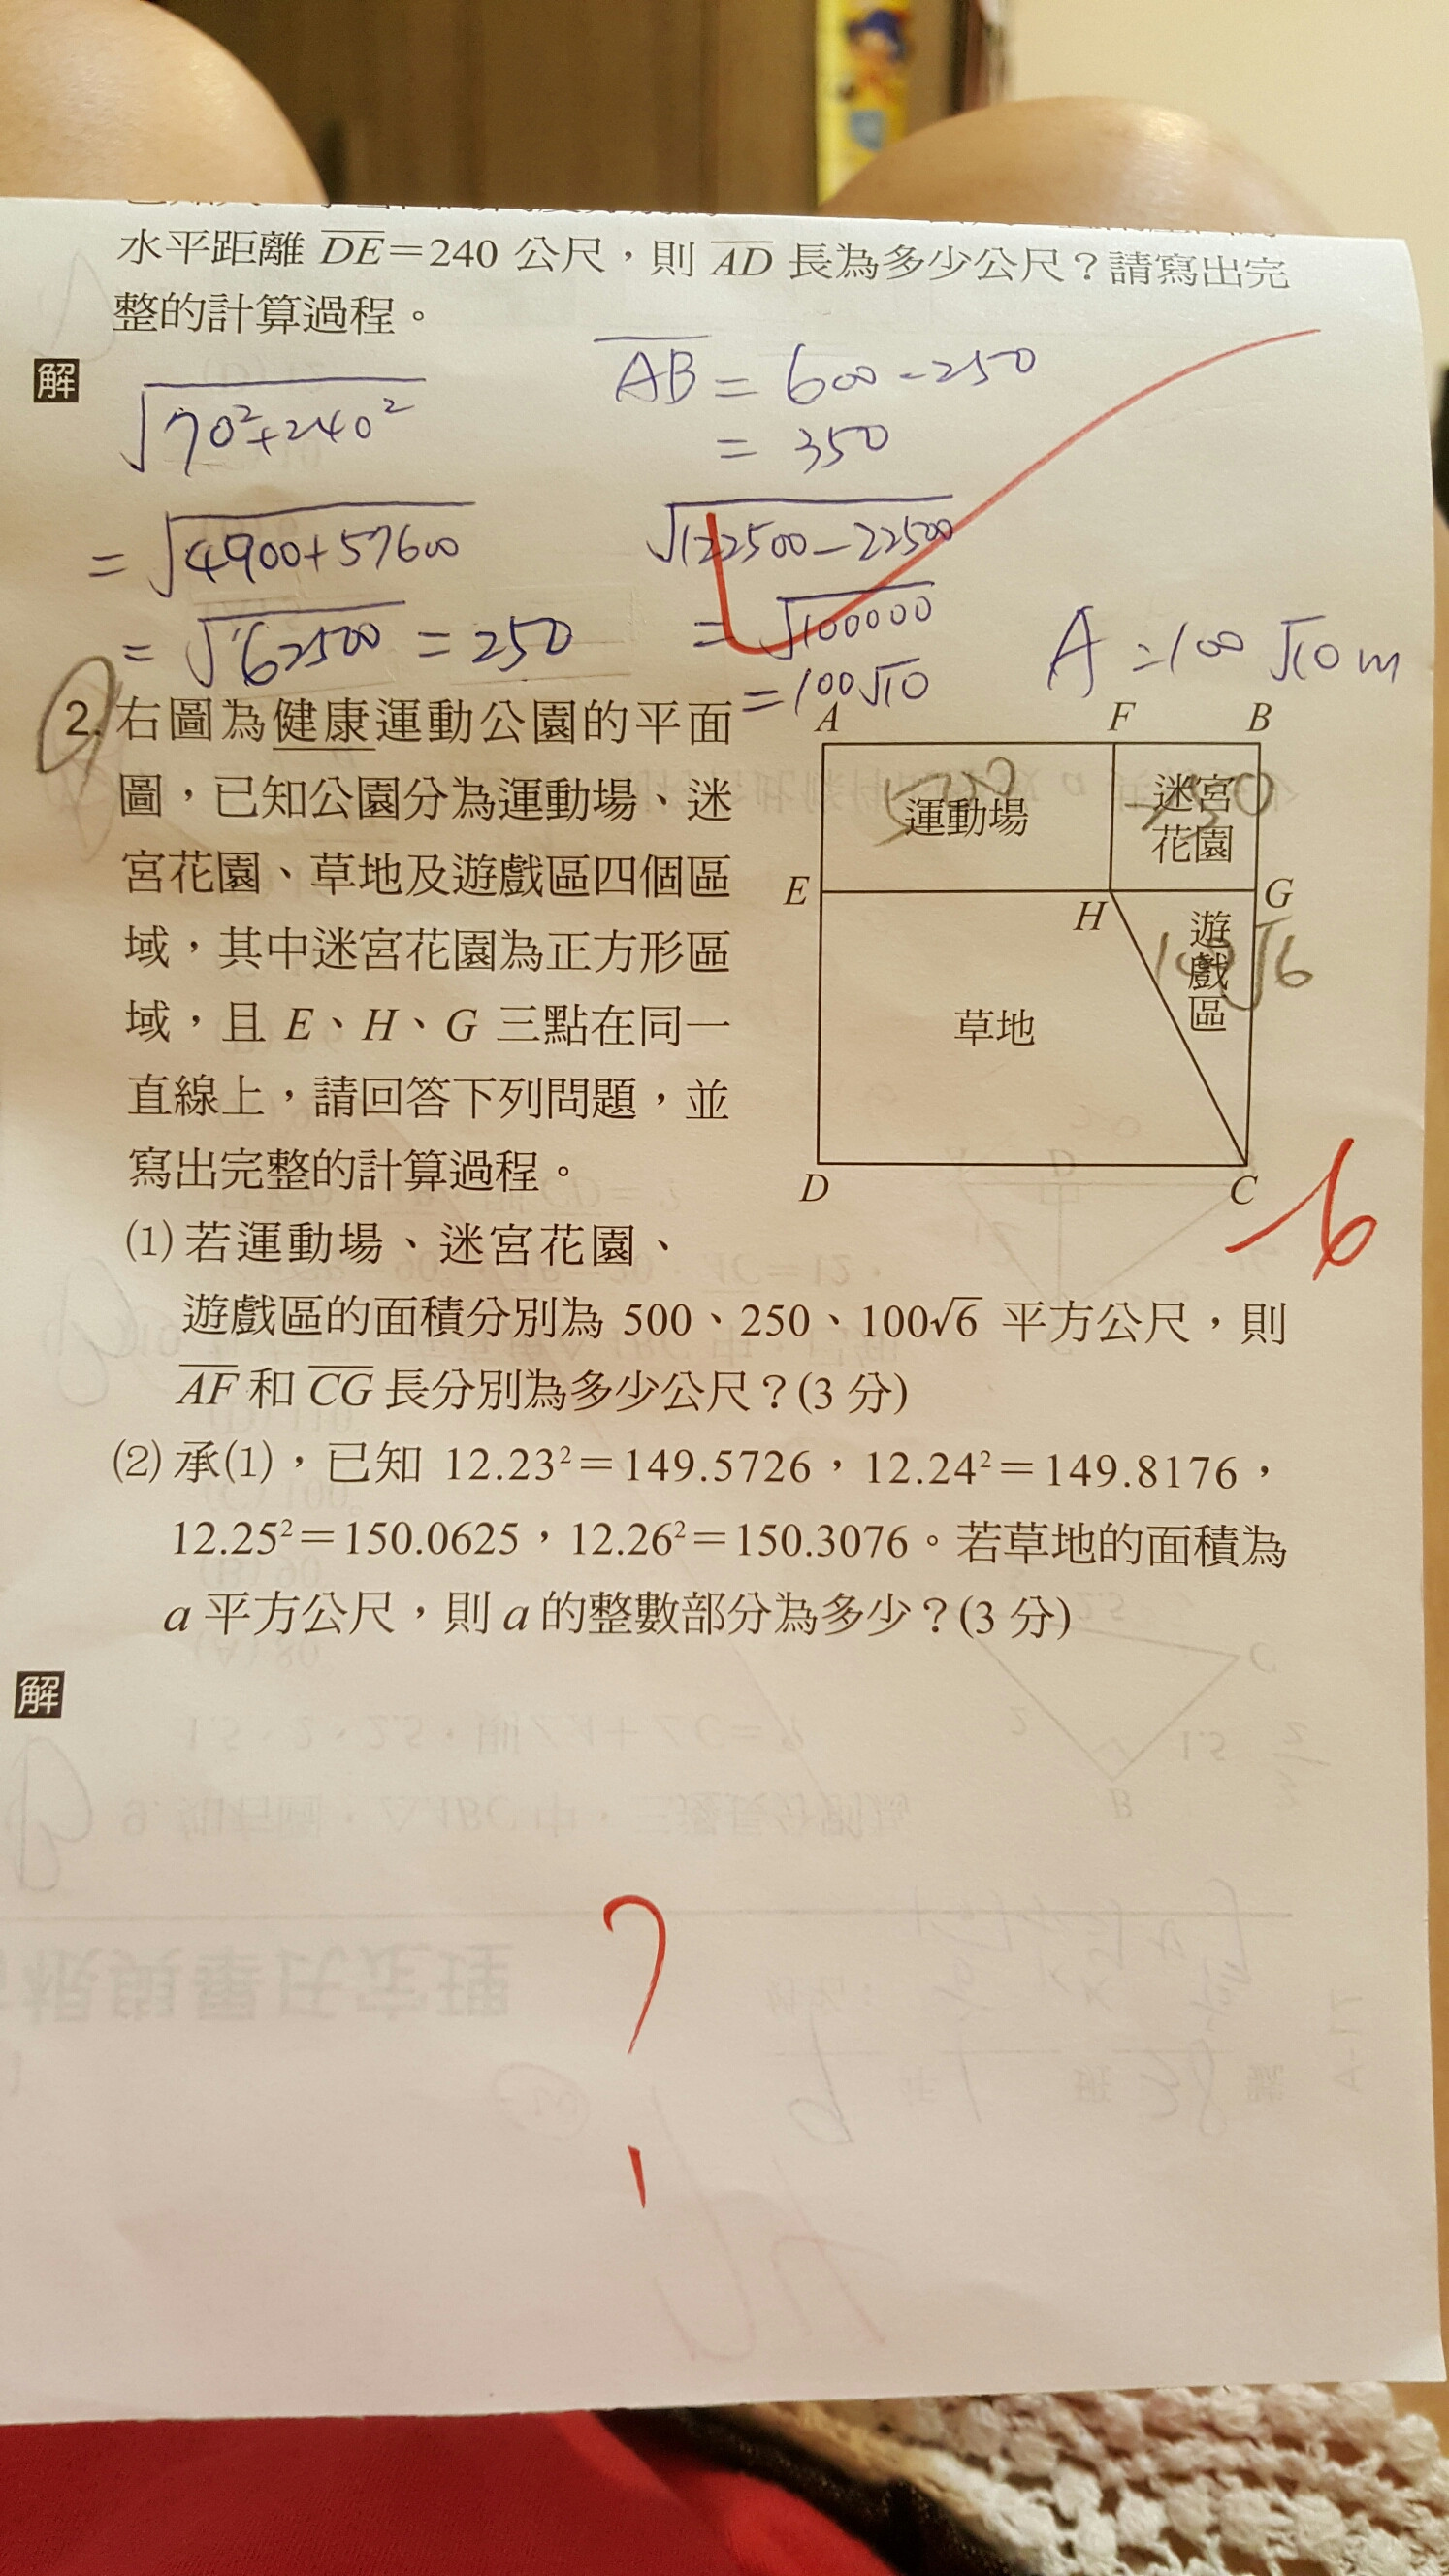 水平距離 DE=240 公尺,則 AD 長為多少公尺?請寫出完
整的計算過程。
解
√70²+240²
=√4900+57600
=√62500=250
AB=600-250
=350
√122500-22500
=√100000
=100√10
A=100√10m
2.右圖為健康運動公園的平面
圖,已知公園分為運動場、迷
宮花園、草地及遊戲區四個區
域,其中迷宮花園為正方形區
域,且 E、H、G 三點在同一
直線上,請回答下列問題,並
寫出完整的計算過程。
A
F
B
500
運動場
250
迷宮
花園
E
H
G
遊戲區
100√6
草地
D
C
-6
(1)若運動場、迷宮花園、
遊戲區的面積分別為 500、250、100√6 平方公尺,則
AF 和 CG 長分別為多少公尺?(3 分)
(2)承(1),已知 12.23²=149.5726,12.24²=149.8176,
12.25²=150.0625,12.26²=150.3076。若草地的面積為
a 平方公尺,則 a 的整數部分為多少?(3 分)
解
?